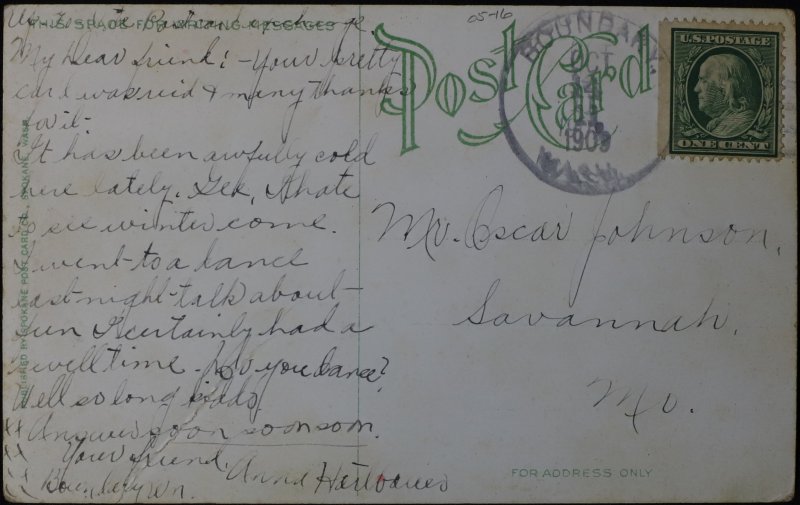 THIS SPACE FOR WRITING MESSAGES
My Dear friend:- Your pretty
card was rec'd & many thanks
for it-
It has been awfully cold
here lately. Gee, I hate
to see winter come.
I went to a dance
last night- talk about-
fun I certainly had a
swell time. Do you dance?
Well so long kiddo
Answer soon soon soon.
Your friend,
Anna
Boundary Wn.
PUBLISHED BY SPOKANE POST CARD CO., SPOKANE, WASH.
Post Card
05-16
BOUNDARY
OCT
1909
WASH.
U.S. POSTAGE
ONE CENT
Mr. Oscar Johnson,
Savannah,
Mo.
FOR ADDRESS ONLY